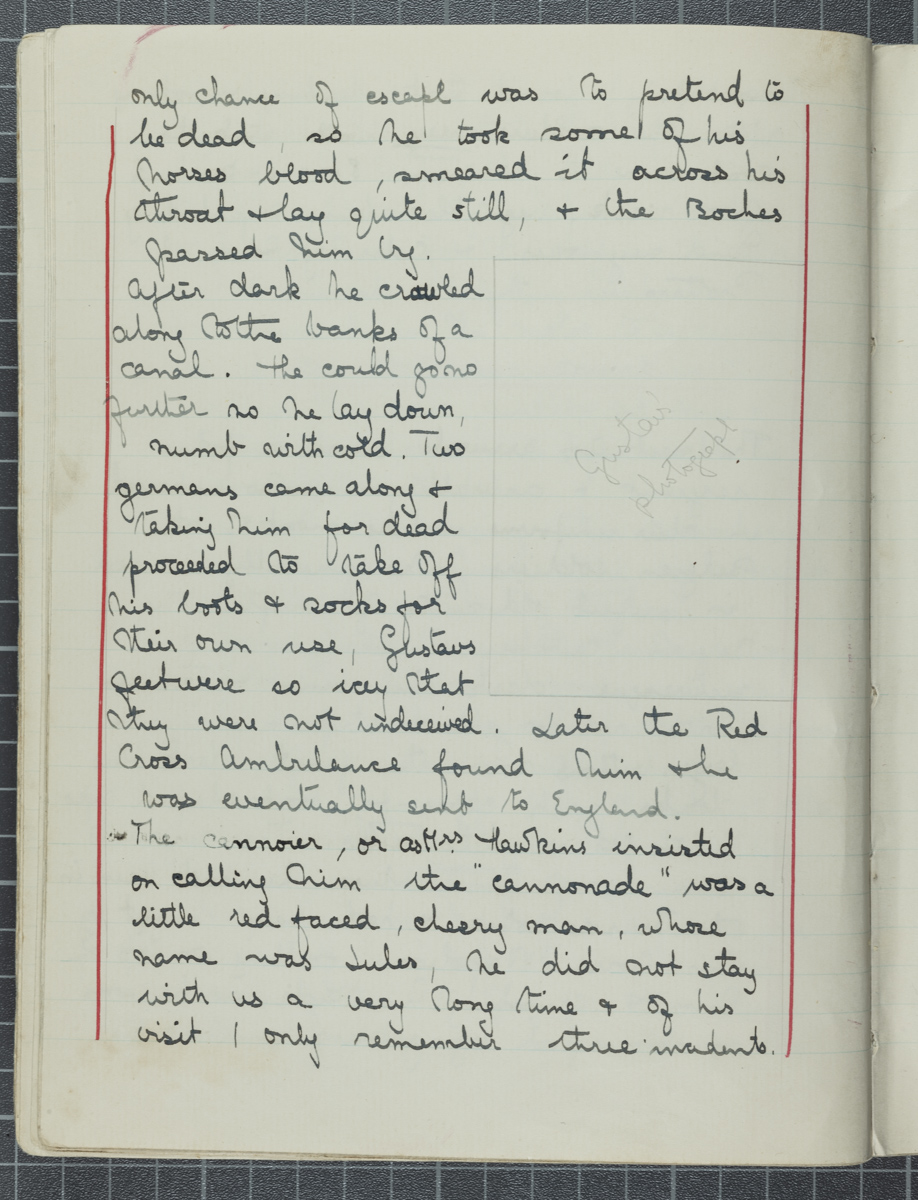 only chance of escape was to pretend to
be dead, so he took some of his
horses blood, smeared it across his
throat & lay quite still, & the Boches
passed him by.
After dark he crawled
along to the banks of a
canal. He could go no
further so he lay down,
numb with cold. Two
germans came along &
taking him for dead
proceeded to take off
his boots & socks for
their own use, Gustavs
feet were so icey that
they were not undeceived. Later the Red
Cross Ambulance found him & he
was eventually sent to England.
The cannoier, or as Mrs. Hawkins insisted
on calling him the "cannonade" was a
little red faced, cheery man, whose
name was Jules, he did not stay
with us a very long time & of his
visit I only remember three incidents.
Gustavs
photograph